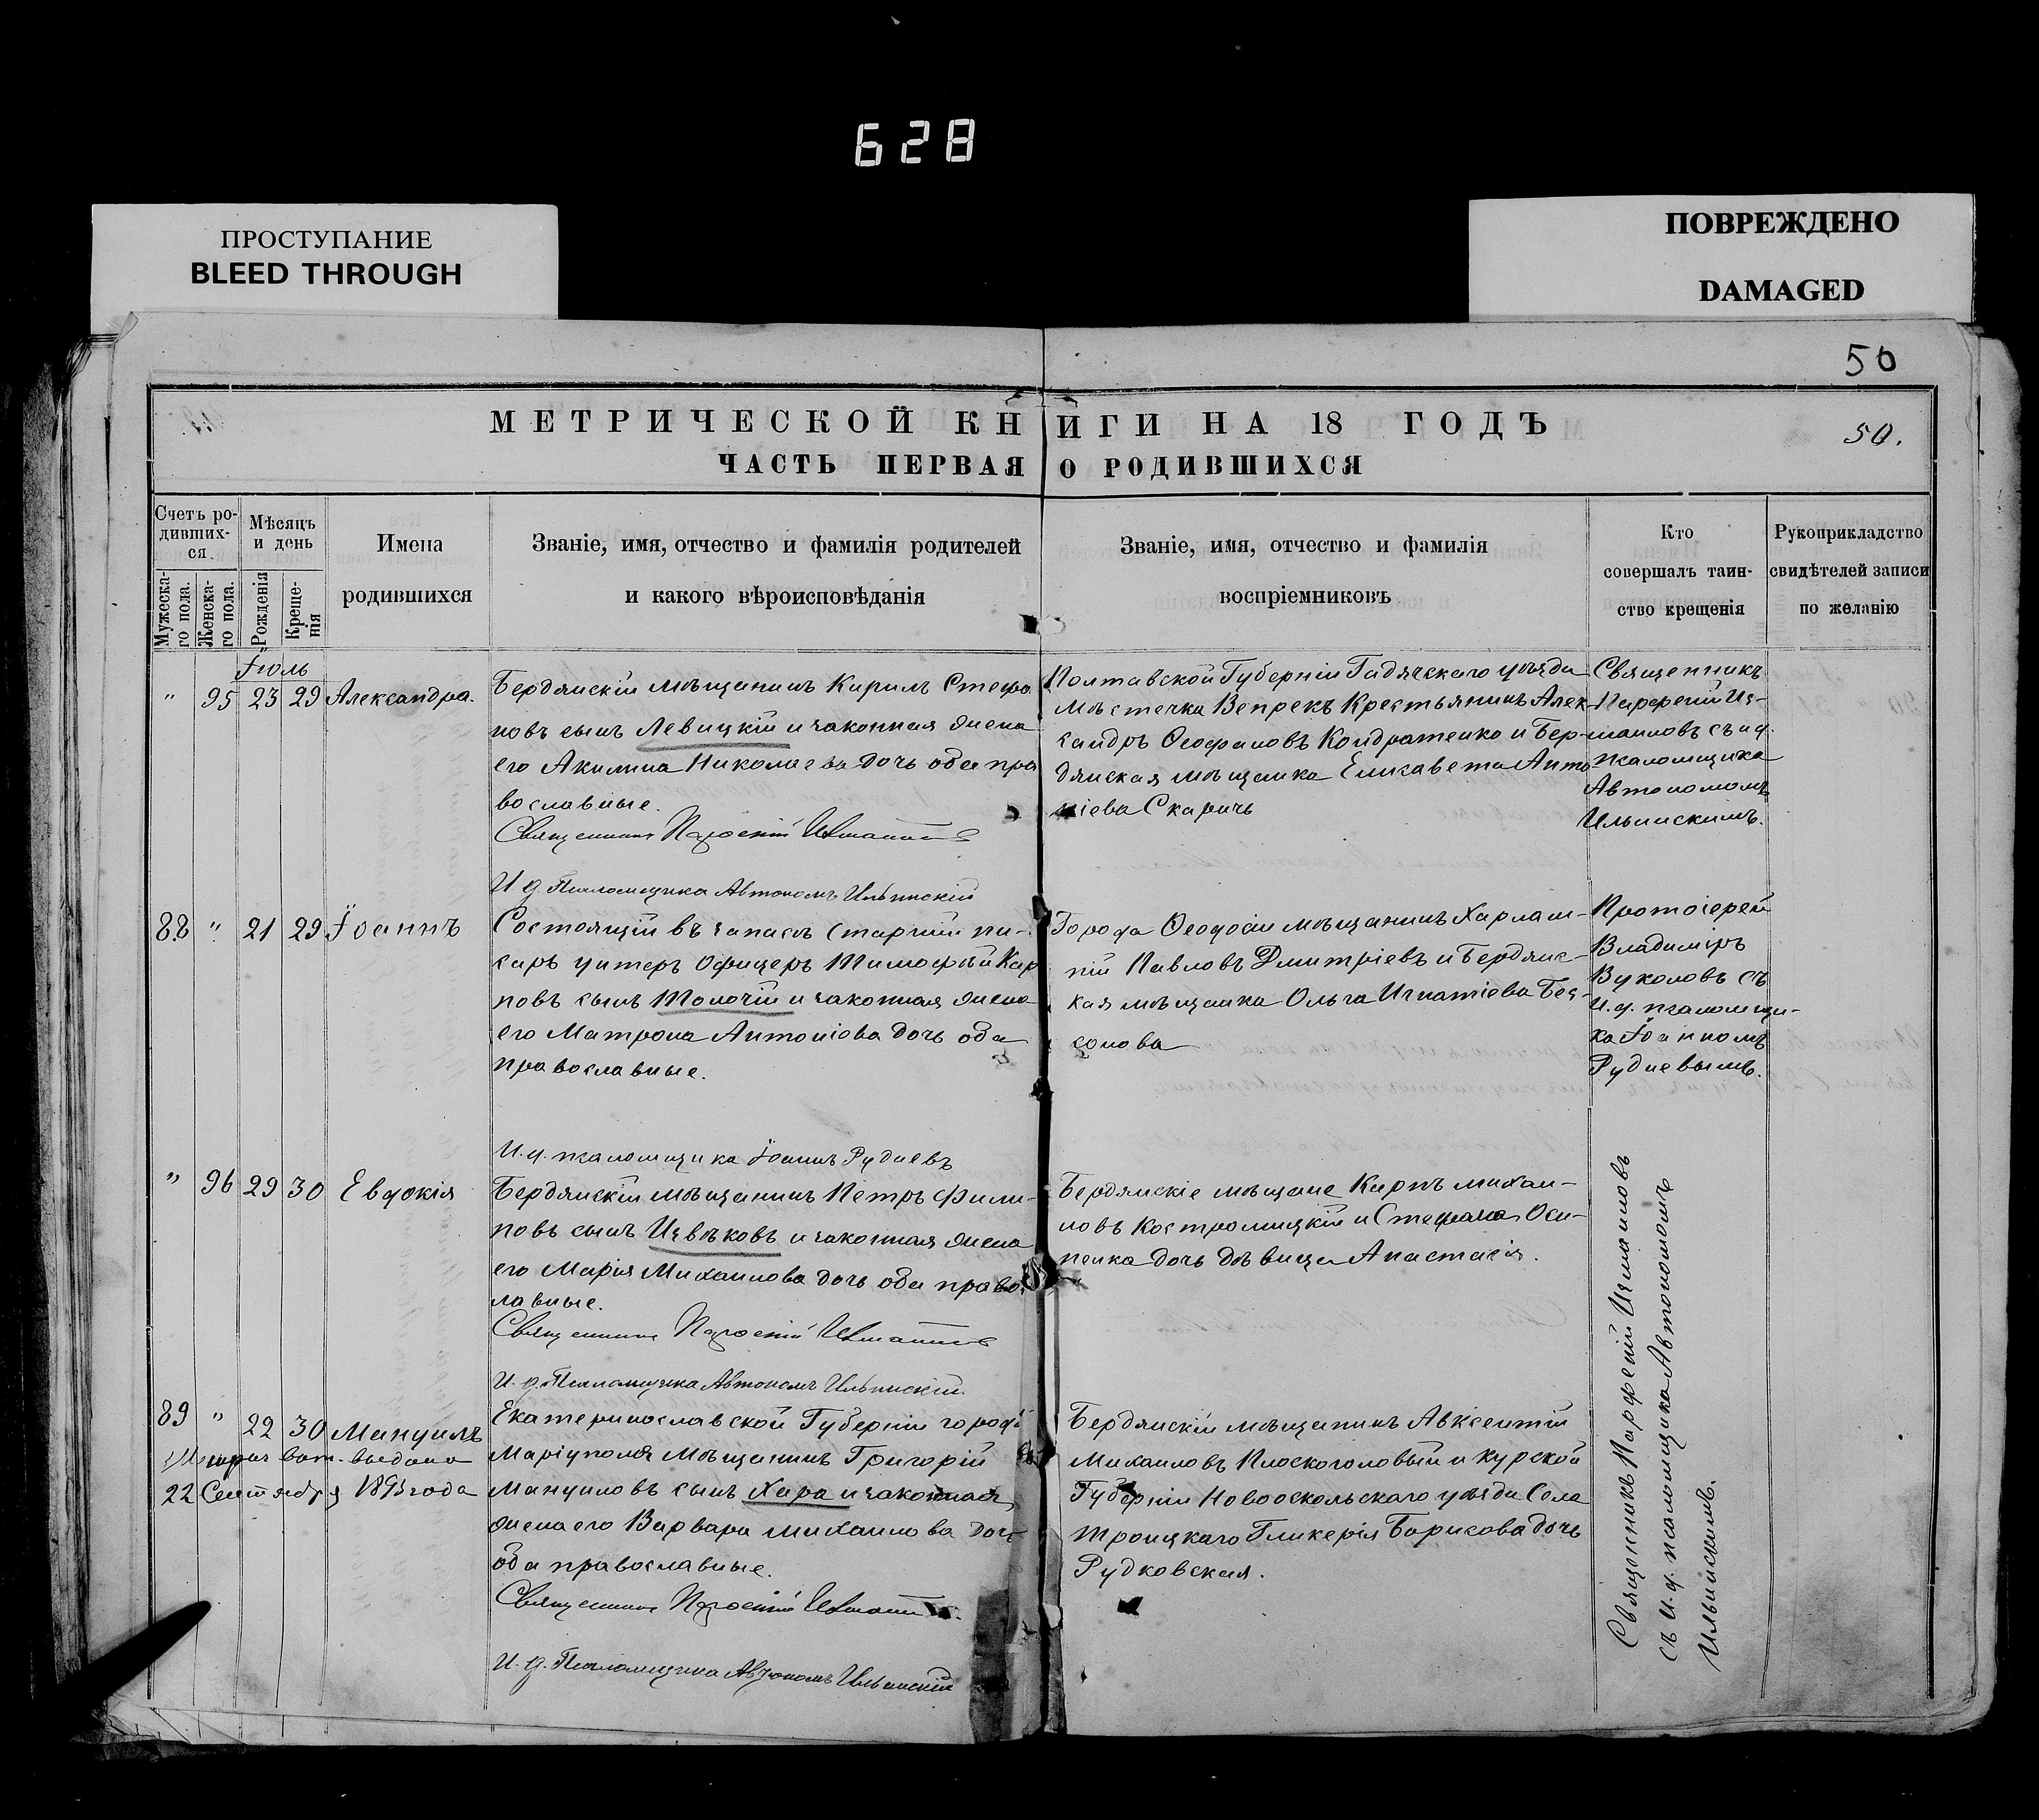 628
ПРОСТУПАНИЕ
BLEED THROUGH
ПОВРЕЖДЕНО
DAMAGED
50
МЕТРИЧЕСКОЙ КНИГИ НА 18 ГОДЪ
50.
ЧАСТЬ ПЕРВАЯ О РОДИВШИХСЯ
Счетъ ро-
дивших-
ся.
Мужеска-
го пола.
Женска-
го пола.
Мѣсяцъ
и день
Рожденія
Креще-
нія
Имена
родившихся
Званіе, имя, отчество и фамилія родителей
и какого вѣроисповѣданія
Званіе, имя, отчество и фамилія
воспріемниковъ
Кто
совершалъ таин-
ство крещенія
Рукоприкладство
свидѣтелей записи
по желанію
Іюль
" 95 23 29 Александра.
Бердянскій мѣщанинъ Кирилъ Стефа
новъ сынъ Левицкій и законная жена
его Акилина Николаева дочь оба пра
вославные.
Священникъ Парѳеній
И. д. Псаломщика Автономъ Ильинскій
Полтавской Губерніи Гадячскаго уѣзда
мѣстечка Веприкъ Крестьянинъ Алек-
сандръ Ѳеофановъ Кондратенко и Бер-
дянская мѣщанка Елисавета Анто
ніева Скаричь
Священникъ
Парфеній Из-
маиловъ съ и.д.
псаломщика
Автономомъ
Ильинскимъ.
88 " 21 29 Іоаннъ
Состоящій въ запасѣ старшій пи-
сарь унтеръ офицеръ Тимофѣй Кар
повъ сынъ Толочій и законная жена
его Матрона Антоніова дочь оба
православные.
И. д. псаломщика Іоаннъ Рудневъ
Города Ѳеодосіи мѣщанинъ Харлам-
пій Павловъ Дмитріевъ и Бердянс-
кая мѣщанка Ольга Игнатіева Без-
сонова
Протоіерей
Владиміръ
Вуколовъ съ
и. д. псаломщи-
ка Іоанномъ
Рудневымъ.
" 96 29 30 Евдокія
Бердянскій мѣщанинъ Петръ Фили-
повъ сынъ Извѣковъ и законная жена
его Марія Михаилова дочь оба правос
лавные.
Священникъ Парѳеній
И. д. Псаломщика Автономъ Ильинскій.
Бердянскіе мѣщане Карпъ Михаи-
ловъ Костромицкій и Стефана Оси-
пенка дочь дѣвица Анастасія.
89 " 22 30 Мануилъ
выдана
22 Сентября 1893 года
Екатеринославской Губерніи города
Маріуполя Мѣщанинъ Григорій
Мануиловъ сынъ Хара и законная
жена его Варвара Михаилова дочь
оба православные.
Священникъ Парѳеній
И. д. Псаломщика Автономъ Ильинскій
Бердянскій мѣщанинъ Авксентій
Михаиловъ Плоскоголовый и Курской
Губерніи Новооскольскаго уѣзда Села
Троицкаго Гликерія Борисова дочь
Рудковская.
Священникъ Парфеній Измаиловъ
съ И. д. псаломщика Автономомъ
Ильинскимъ.